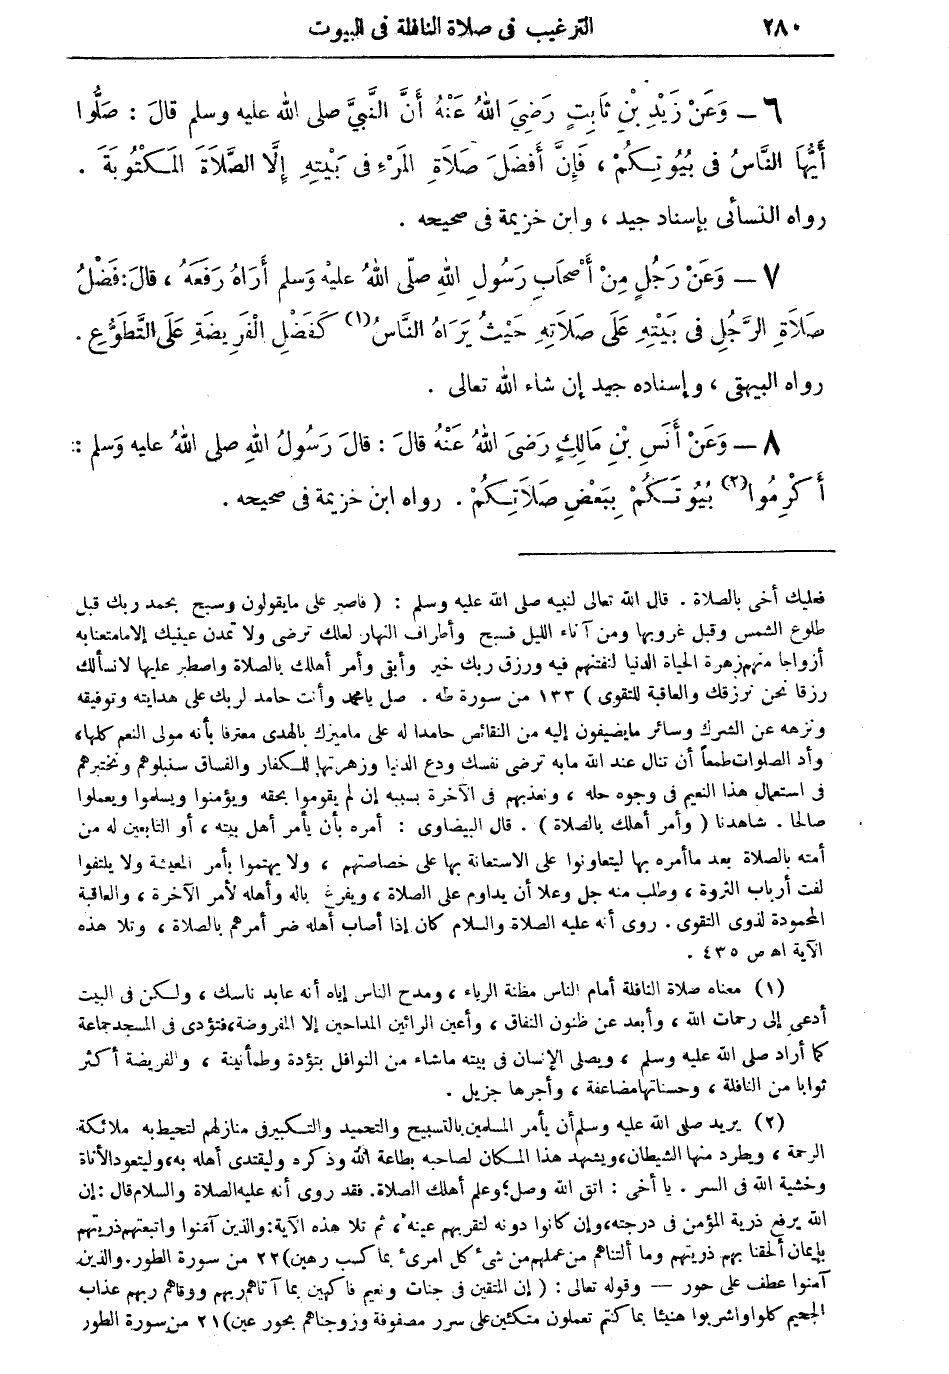 ٢٨٠ الترغيب فى صلاة النافلة فى البيوت
٦ — وَعَنْ زَيْدِ بْنِ ثَابِتٍ رَضِيَ اللهُ عَنْهُ أَنَّ النَّبِيَّ صلى الله عليه وسلم قالَ : صَلُّوا
أَيُّهَا النَّاسُ فى بُيُوتِكُمْ ، فَإِنَّ أَفْضَلَ صَلَاةِ المَرْءِ فى بَيْتِهِ إِلَّا الصَّلَاةَ المَكْتُوبَةَ .
رواه النسائى بإسناد جيد ، وابن خزيمة فى صحيحه .
٧ — وَعَنْ رَجُلٍ مِنْ أَصْحَابِ رَسُولِ اللهِ صلّى اللهُ عليْه وَسلم أُرَاهُ رَفَعَهُ ، قالَ : فَضْلُ
صَلَاةِ الرَّجُلِ فى بَيْتِهِ عَلَى صَلَاتِهِ حَيْثُ يَرَاهُ النَّاسُ (١) كَفَضْلِ الْفَرِيضَةِ عَلَى التَّطَوُّعِ .
رواه البيهقى ، وإسناده جيد إن شاء الله تعالى .
٨ — وَعَنْ أَنَسِ بْنِ مَالِكٍ رَضِىَ اللهُ عَنْهُ قالَ : قالَ رَسُولُ اللهِ صلى اللهُ عليه وَسلم :
أَكْرِمُوا (٢) بُيُوتَكُمْ بِبَعْضِ صَلَاتِكُمْ . رواه ابن خزيمة فى صحيحه .
فعليك أخى بالصلاة . قال الله تعالى لنبيه صلى الله عليه وسلم : ( فاصبر على مايقولون وسبح بحمد ربك قبل
طلوع الشمس وقبل غروبها ومن آناء الليل فسبح وأطراف النهار لعلك ترضى ولا تمدن عينيك إلامامتعنابه
أزواجا منهم زهرة الحياة الدنيا لنفتنهم فيه ورزق ربك خير وأبقى وأمر أهلك بالصلاة واصطبر عليها لانسألك
رزقا نحن نرزقك والعاقبة للتقوى ) ١٣٣ من سورة طه . صل يامحمد وأنت حامد لربك على هدايته وتوفيقه
ونزهه عن الشرك وسائر مايضيفون إليه من النقائص حامدا له على ماميزك بالهدى معترفا بأنه مولى النعم كلها،
وأد الصلوات طمعاً أن تنال عند الله مابه ترضى نفسك ودع الدنيا وزهرتها للكفار والفساق سنبلوهم ونختبرهم
فى استعمال هذا النعيم فى وجوه حله ، ونعذبهم فى الآخرة بسببه إن لم يقوموا بحقه ويؤمنوا ويسلموا ويعملوا
صالحا . شاهدنا ( وأمر أهلك بالصلاة ) . قال البيضاوى : أمره بأن يأمر أهل بيته ، أو التابعين له من
أمته بالصلاة بعد ماأمره بها ليتعاونوا على الاستعانة بها على خصاصتهم ، ولا يهتموا بأمر المعيشة ولا يلتفوا
لفت أرباب الثروة ، وطلب منه جل وعلا أن يداوم على الصلاة ، ويفرغ باله وأهله لأمر الآخرة ، والعاقبة
المحمودة لذوى التقوى . روى أنه عليه الصلاة والسلام كان إذا أصاب أهله ضر أمرهم بالصلاة ، وتلا هذه
الآية اه ص ٤٣٥ .
(١) معناه صلاة النافلة أمام الناس مظنة الرياء ، ومدح الناس إياه أنه عابد ناسك ، ولكن فى البيت
أدعى إلى رحمات الله ، وأبعد عن ظنون النفاق ، وأعين الرائين المداحين إلا المفروضة،فتؤدى فى المسجدجماعة
كما أراد صلى الله عليه وسلم ، ويصلى الإنسان فى بيته ماشاء من النوافل بتؤدة وطمأنينة ، والفريضة أكثر
ثوابا من النافلة ، وحسناتهامضاعفة ، وأجرها جزيل .
(٢) يريد صلى الله عليه وسلم أن يأمر المسلمين بالتسبيح والتحميد والتكبير فى منازلهم لتحيط به ملائكة
الرحمة ، ويطرد منها الشيطان،ويشهد هذا المكان لصاحبه بطاعة الله وذكره وليقتدى أهله به،وليتعودالأناة
وخشية الله فى السر . يا أخى : اتق الله وصل؛وعلم أهلك الصلاة. فقد روى أنه عليه الصلاة والسلام قال : إن
الله يرفع ذرية المؤمن فى درجته،وإن كانوا دونه لتقربهم عينه ، ثم تلا هذه الآية:والذين آمنوا واتبعتهم ذريتهم
بإيمان ألحقنا بهم ذريتهم وما ألتناهم من عملهم من شئ كل امرئ بما كسب رهين)٢٢ من سورة الطور.والذين
آمنوا عطف على حور — وقوله تعالى : ( إن المتقين فى جنات ونعيم فاكهين بما آتاهم ربهم ووقاهم ربهم عذاب
الجحيم كلوا واشربوا هنيئا بما كنتم تعملون متكئين على سرر مصفوفة وزوجناهم بحور عين)٢١ من سورة الطور